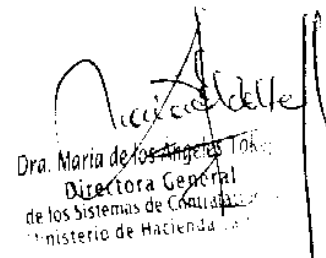 Dra. María de los Angeles
Directora General
de los Sistemas de
Ministerio de Hacienda